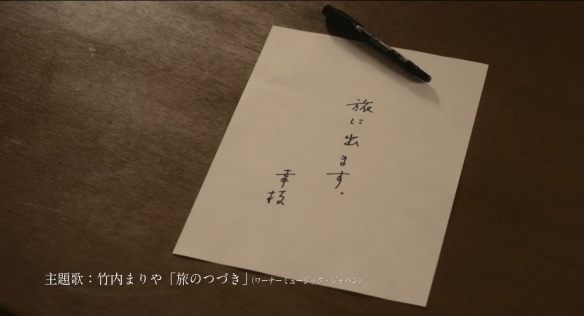 旅に出ます。
幸枝
主題歌：竹内まりや「旅のつづき」(ワーナーミュージック・ジャパン)